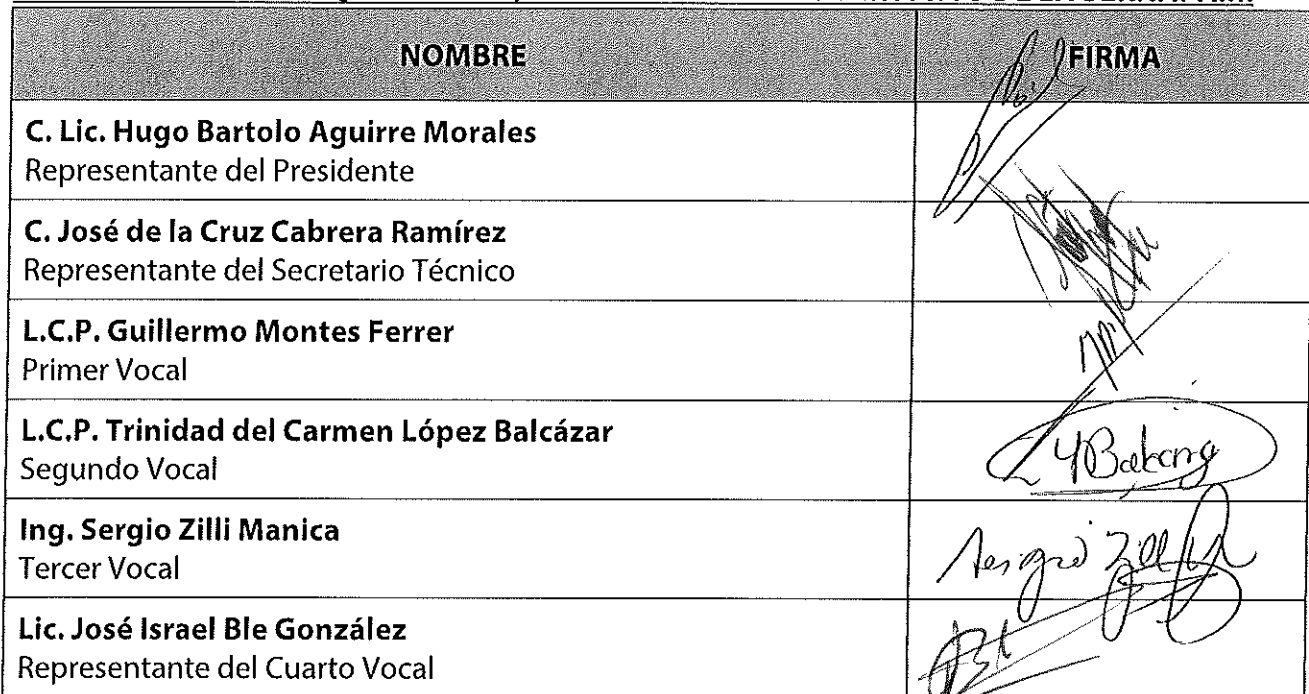 NOMBRE
FIRMA
C. Lic. Hugo Bartolo Aguirre Morales
Representante del Presidente
C. José de la Cruz Cabrera Ramírez
Representante del Secretario Técnico
L.C.P. Guillermo Montes Ferrer
Primer Vocal
L.C.P. Trinidad del Carmen López Balcázar
Segundo Vocal
Ing. Sergio Zilli Manica
Tercer Vocal
Lic. José Israel Ble González
Representante del Cuarto Vocal